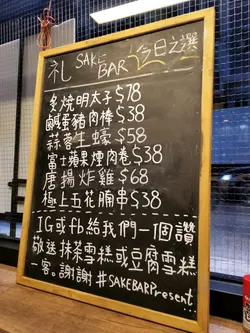 礼 SAKE BAR 今日之選
炙燒明太子$78
鹹蛋豬肉棒$38
蒜蓉生蠔$58
富士蘋果煙肉卷$38
唐揚炸雞$68
極上五花腩串$38
IG或fb給我們一個讚
敬送抹茶雪糕或豆腐雪糕
一客。謝謝#SAKEBARPresent...